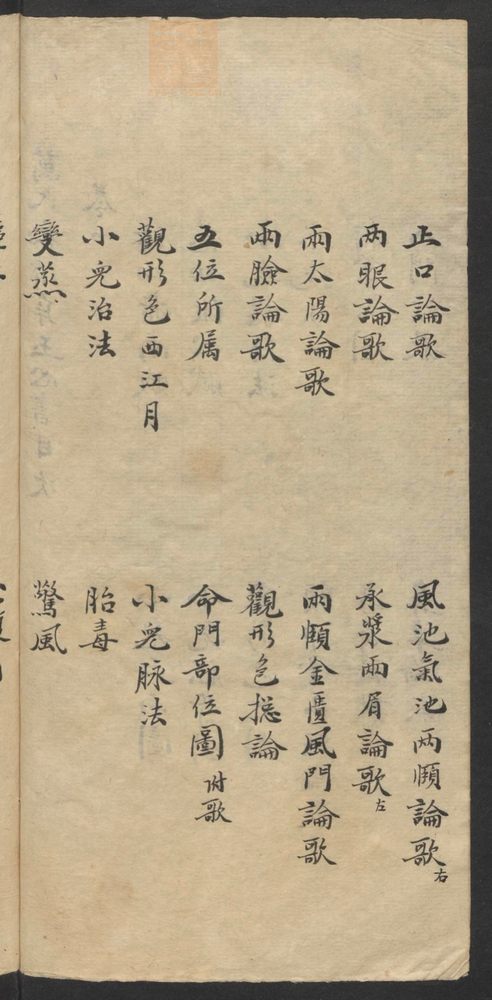 正口論歌
風池氣池兩頤論歌右
兩眼論歌
承漿兩眉論歌左
兩太陽論歌
兩頤金匱風門論歌
兩臉論歌
觀形色揔論
五位所属
命門部位圖 附歌
觀形色西江月
小兒脉法
小兒治法
胎毒
變蒸
驚風